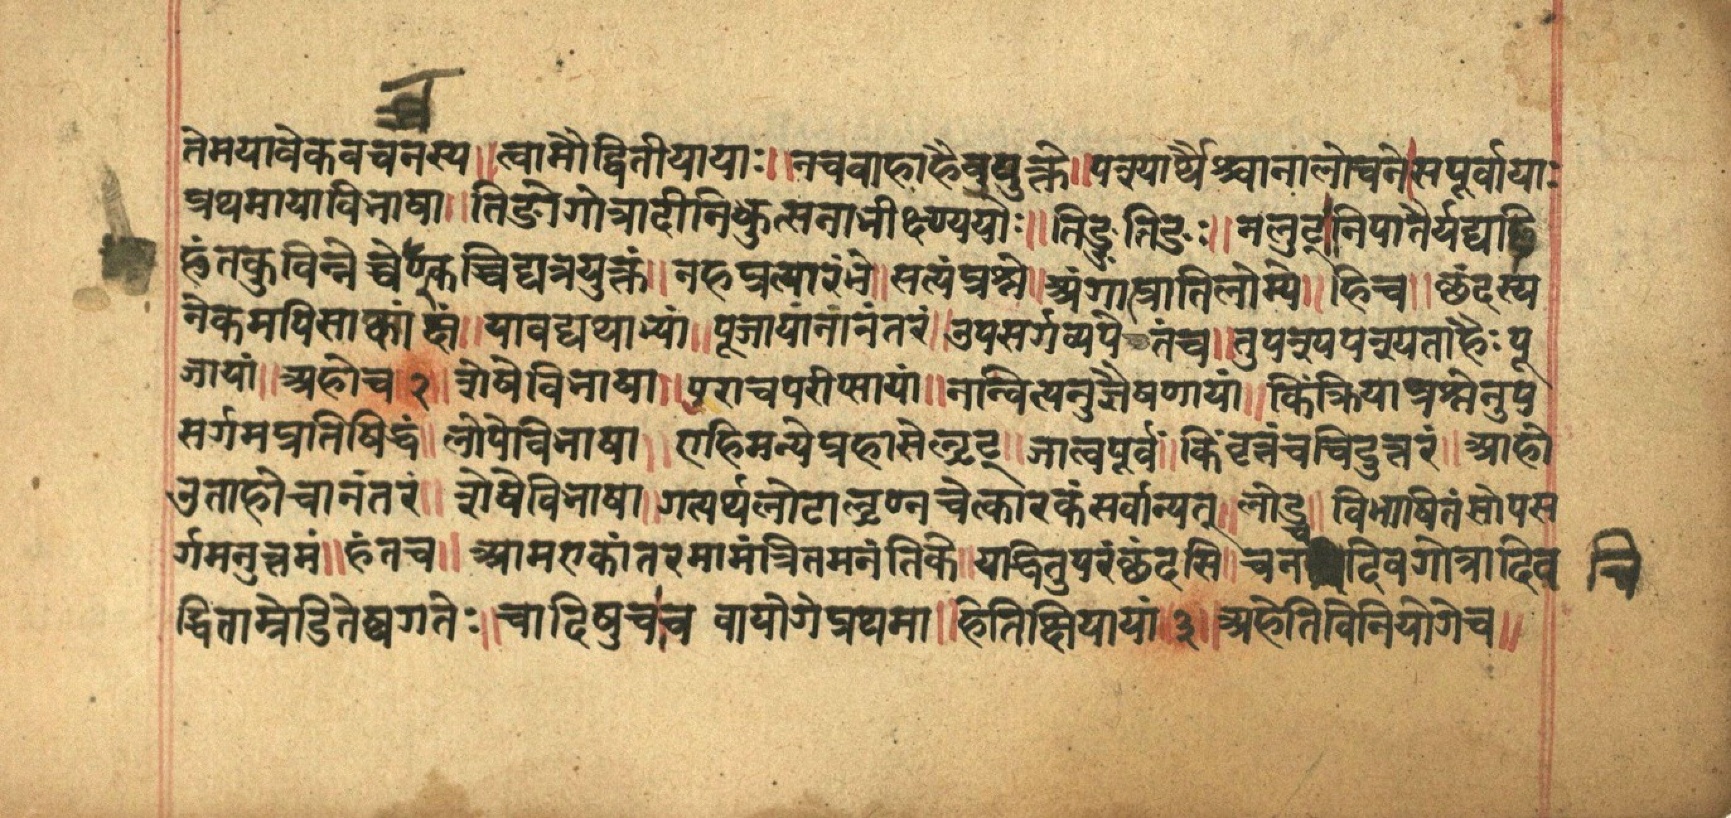 तेमयावेकवचनस्य॥त्वामौद्वितीयायाः॥नचवाहाहैवयुक्ते॥पश्यार्थैश्चानालोचने।सपूर्वायाः
प्रथमायाविभाषा॥तिङोगोत्रादीनिकुत्सनाभीक्ष्ण्ययोः॥तिङ्ङतिङः॥नलुट्।निपातैर्यद्यदि
हंतकुविन्नेच्चेण्कच्चिद्यत्रयुक्तं॥नहप्रत्यारंभे॥सत्यंप्रश्ने॥अंगाप्रातिलोम्ये॥हिच॥छंदस्य
नेकमपिसाकांक्षं॥यावद्यथाभ्यां॥पूजायांनानंतरं॥उपसर्गव्यपेतंच॥तुपश्यपश्यताहैः पू
जायां॥अहोच २ शेषेविभाषा॥पुराचपरीप्सायां॥नन्वित्यनुज्ञैषणायां॥किंक्रियाप्रश्नेनुप
सर्गमप्रतिषिद्धं॥लोपेविभाषा॥एहिमन्येप्रहासेलृट्॥जात्वपूर्वं॥किंवृत्तंचचिदुत्तरं॥आहो
उताहोचानंतरं॥शेषेविभाषा॥गत्यर्थलोटालृण्नचेत्कारकंसर्वान्यत्॥लोट्च॥विभाषितंसोपस
र्गमनुत्तमं॥हंतच॥आमएकांतरमामंत्रितमनंतिके॥यद्धितुपरंछंदसि॥चनचिदिवगोत्रादित
द्धिताम्रेडितेष्वगतेः॥चादिषुच।च वायोगेप्रथमा॥हेतिक्षियायां ३॥अहेतिविनियोगेच॥